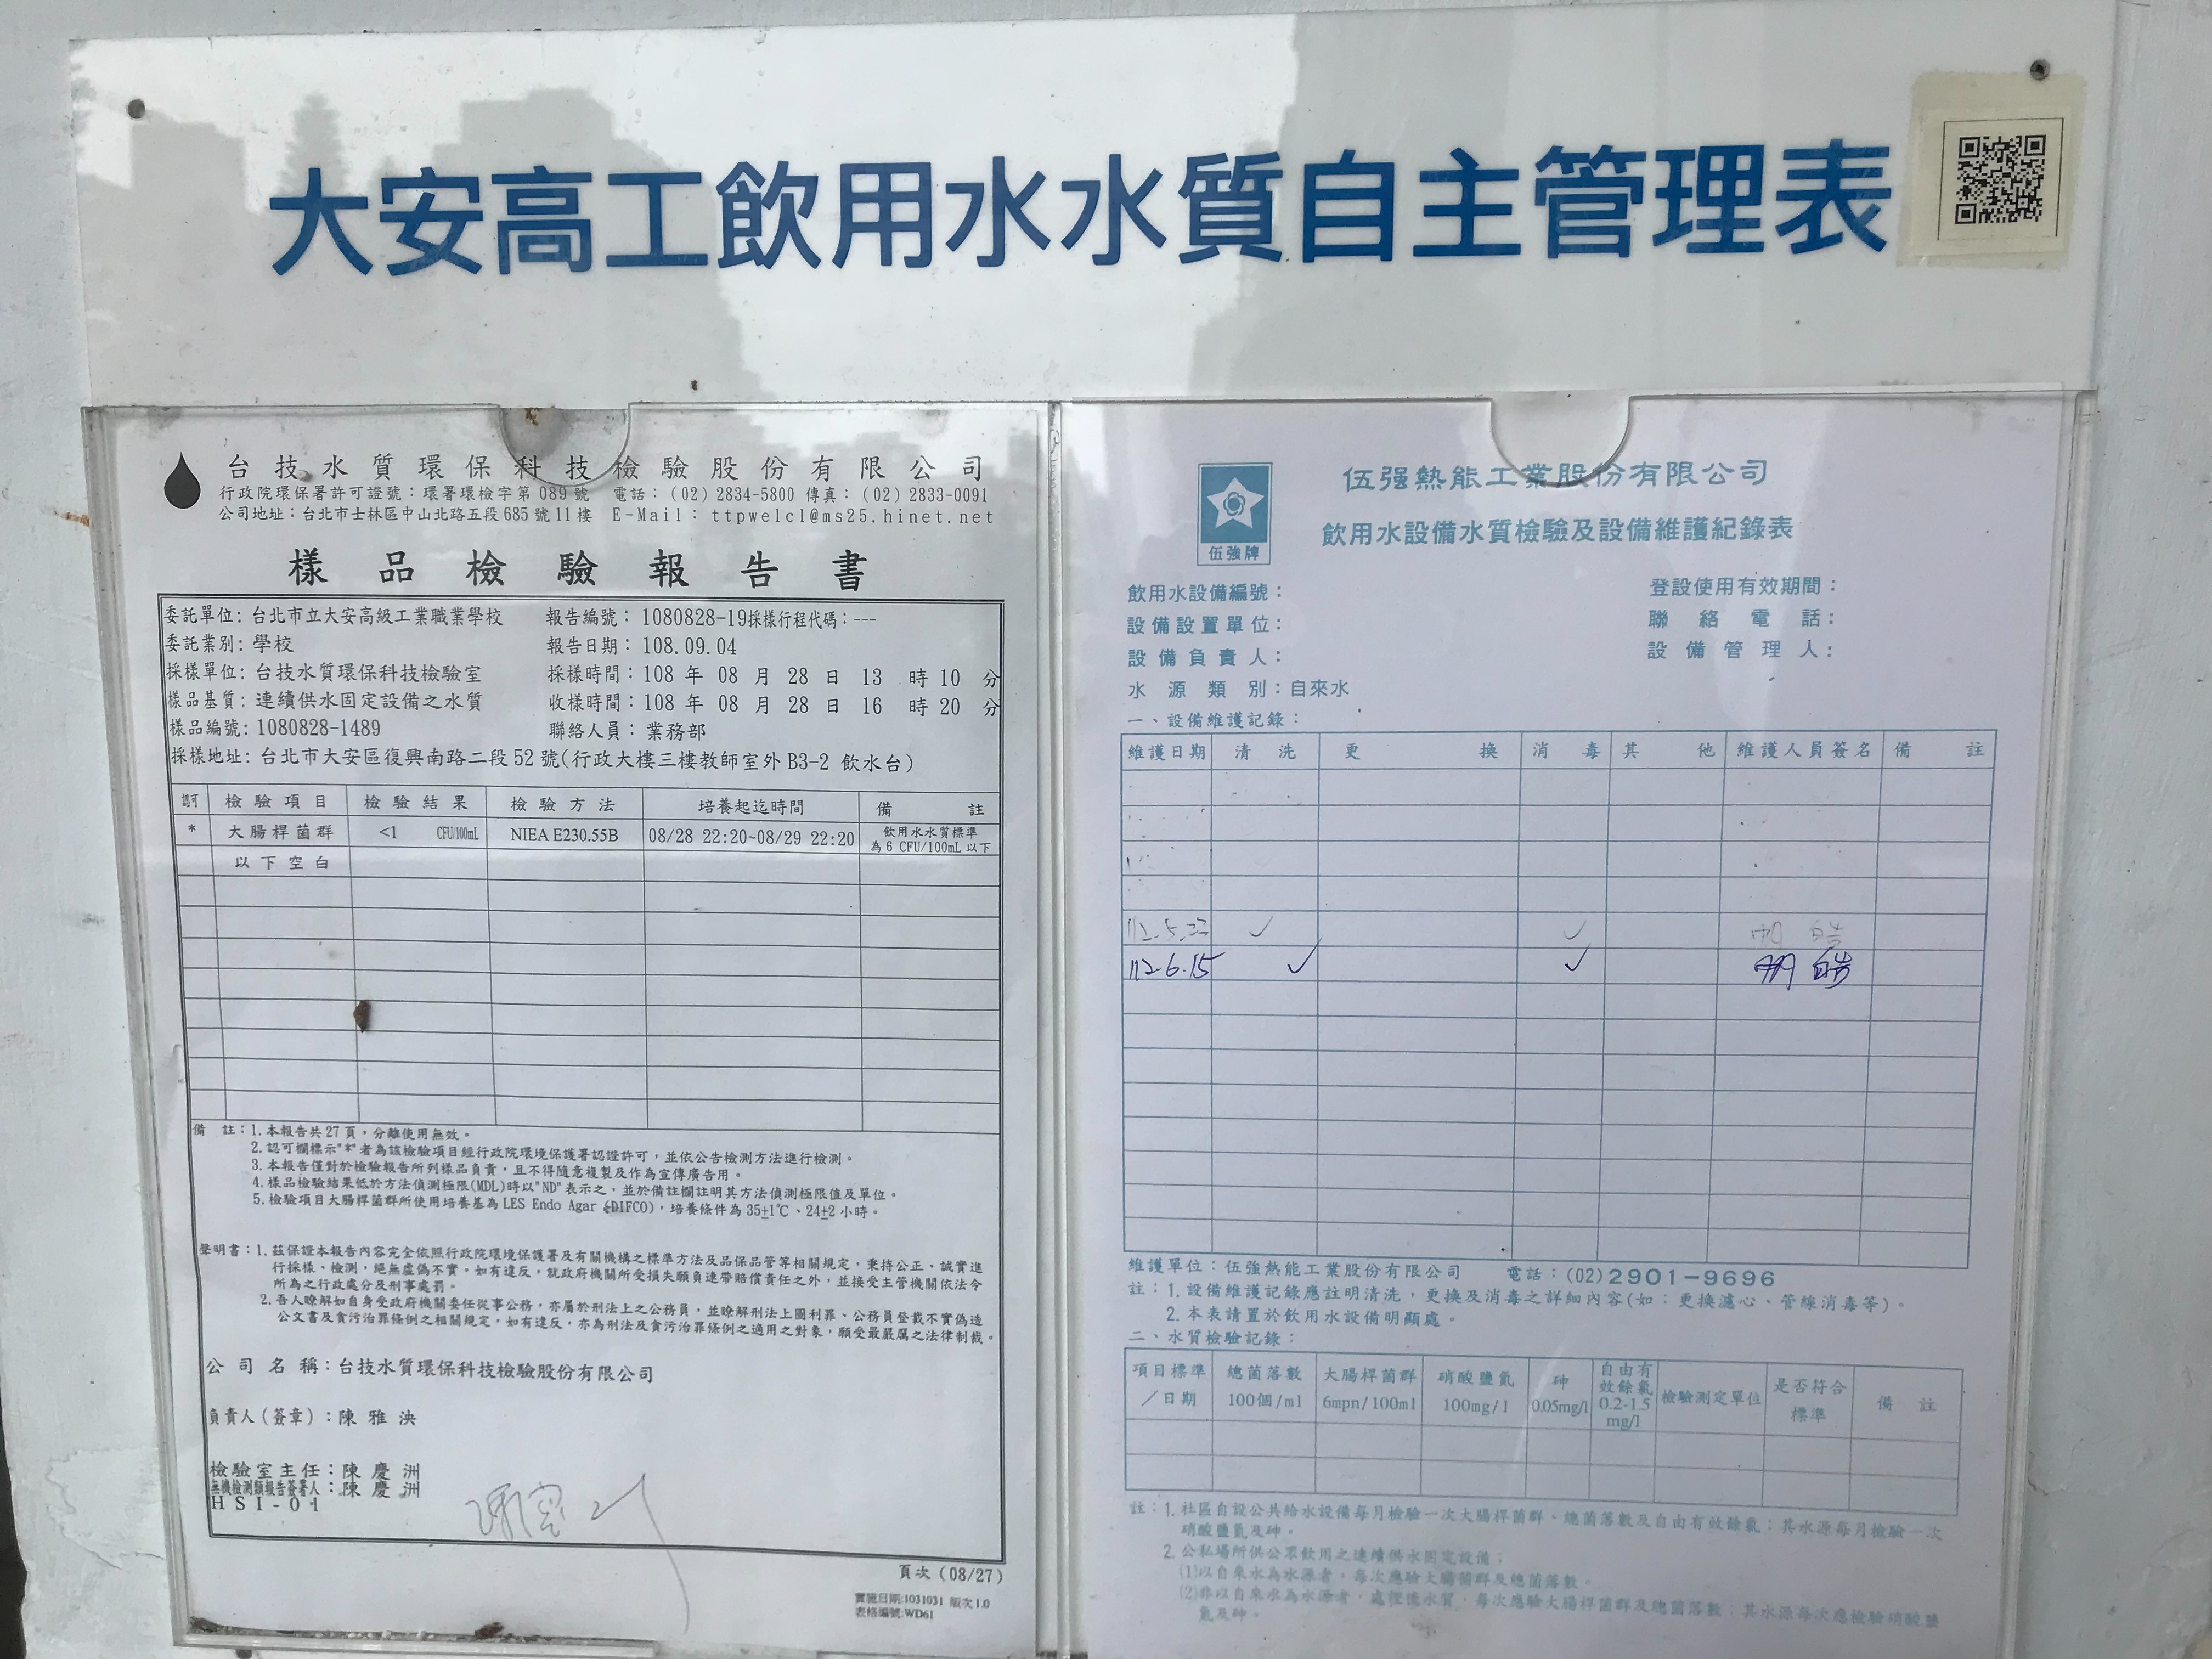 大安高工飲用水水質自主管理表
台技水質環保科技檢驗股份有限公司
行政院環保署許可證號：環署環檢字第 089 號 電話：(02) 2834-5800 傳真：(02) 2833-0091
公司地址：台北市士林區中山北路五段 685 號 11 樓 E-Mail： ttpwelcl@ms25.hinet.net
樣品檢驗報告書
委託單位: 台北市立大安高級工業職業學校 報告編號： 1080828-19採樣行程代碼：---
委託業別: 學校 報告日期： 108.09.04
採樣單位: 台技水質環保科技檢驗室 採樣時間：108 年 08 月 28 日 13 時 10 分
樣品基質: 連續供水固定設備之水質 收樣時間：108 年 08 月 28 日 16 時 20 分
樣品編號: 1080828-1489 聯絡人員： 業務部
採樣地址: 台北市大安區復興南路二段 52 號(行政大樓三樓教師室外 B3-2 飲水台)
認可 檢驗項目 檢驗結果 檢驗方法 培養起迄時間 備註
* 大腸桿菌群 <1 CFU/100mL NIEA E230.55B 08/28 22:20~08/29 22:20 飲用水水質標準
為 6 CFU/100mL 以下
以下空白
備 註：1. 本報告共 27 頁，分離使用無效。
2. 認可欄標示"*"者為該檢驗項目經行政院環境保護署認證許可，並依公告檢測方法進行檢測。
3. 本報告僅對於檢驗報告所列樣品負責，且不得隨意複製及作為宣傳廣告用。
4. 樣品檢驗結果低於方法偵測極限(MDL)時以"ND"表示之，並於備註欄註明其方法偵測極限值及單位。
5. 檢驗項目大腸桿菌群所使用培養基為 LES Endo Agar (DIFCO)，培養條件為 35±1℃、24±2 小時。
聲明書：1. 茲保證本報告內容完全依照行政院環境保護署及有關機構之標準方法及品保品管等相關規定，秉持公正、誠實進
行採樣、檢測，絕無虛偽不實。如有違反，就政府機關所受損失願負連帶賠償責任之外，並接受主管機關依法令
所為之行政處分及刑事處罰。
2. 吾人瞭解如自身受政府機關委任從事公務，亦屬於刑法上之公務員，並瞭解刑法上圖利罪、公務員登載不實偽造
公文書及貪污治罪條例之相關規定，如有違反，亦為刑法及貪污治罪條例之適用之對象，願受最嚴厲之法律制裁。
公司名稱：台技水質環保科技檢驗股份有限公司
負責人(簽章)：陳雅泱
檢驗室主任：陳慶洲
無機檢測類報告簽署人：陳慶洲
HSI-01
頁次 (08/27)
實施日期:1031031 版次1.0
表格編號:WD61
伍強牌
伍强熱能工業股份有限公司
飲用水設備水質檢驗及設備維護紀錄表
飲用水設備編號： 登設使用有效期間：
設備設置單位： 聯絡電話：
設備負責人： 設備管理人：
水源類別：自來水
一、設備維護記錄：
維護日期 清洗 更換 消毒 其他 維護人員簽名 備註
112.5.22 ✓ ✓ 明皓
112.6.15 ✓ ✓ 明皓
維護單位：伍強熱能工業股份有限公司 電話：(02)2901-9696
註：1. 設備維護記錄應註明清洗，更換及消毒之詳細內容(如：更換濾心、管線消毒等)。
2. 本表請置於飲用水設備明顯處。
二、水質檢驗記錄：
項目標準／日期 總菌落數 100個/ml 大腸桿菌群 6mpn/100ml 硝酸鹽氮 100mg/l 砷 0.05mg/l 自由有效餘氯 0.2-1.5 mg/l 檢驗測定單位 是否符合標準 備註
註：1. 社區自設公共給水設備每月檢驗一次大腸桿菌群、總菌落數及自由有效餘氯；其水源每月檢驗一次
硝酸鹽氮及砷。
2. 公私場所供公眾飲用之連續供水固定設備；
(1)以自來水為水源者，每次應驗大腸菌群及總菌落數。
(2)非以自來水為水源者，處理後水質，每次應驗大腸桿菌群及總菌落數；其水源每次應檢驗硝酸鹽
氮及砷。